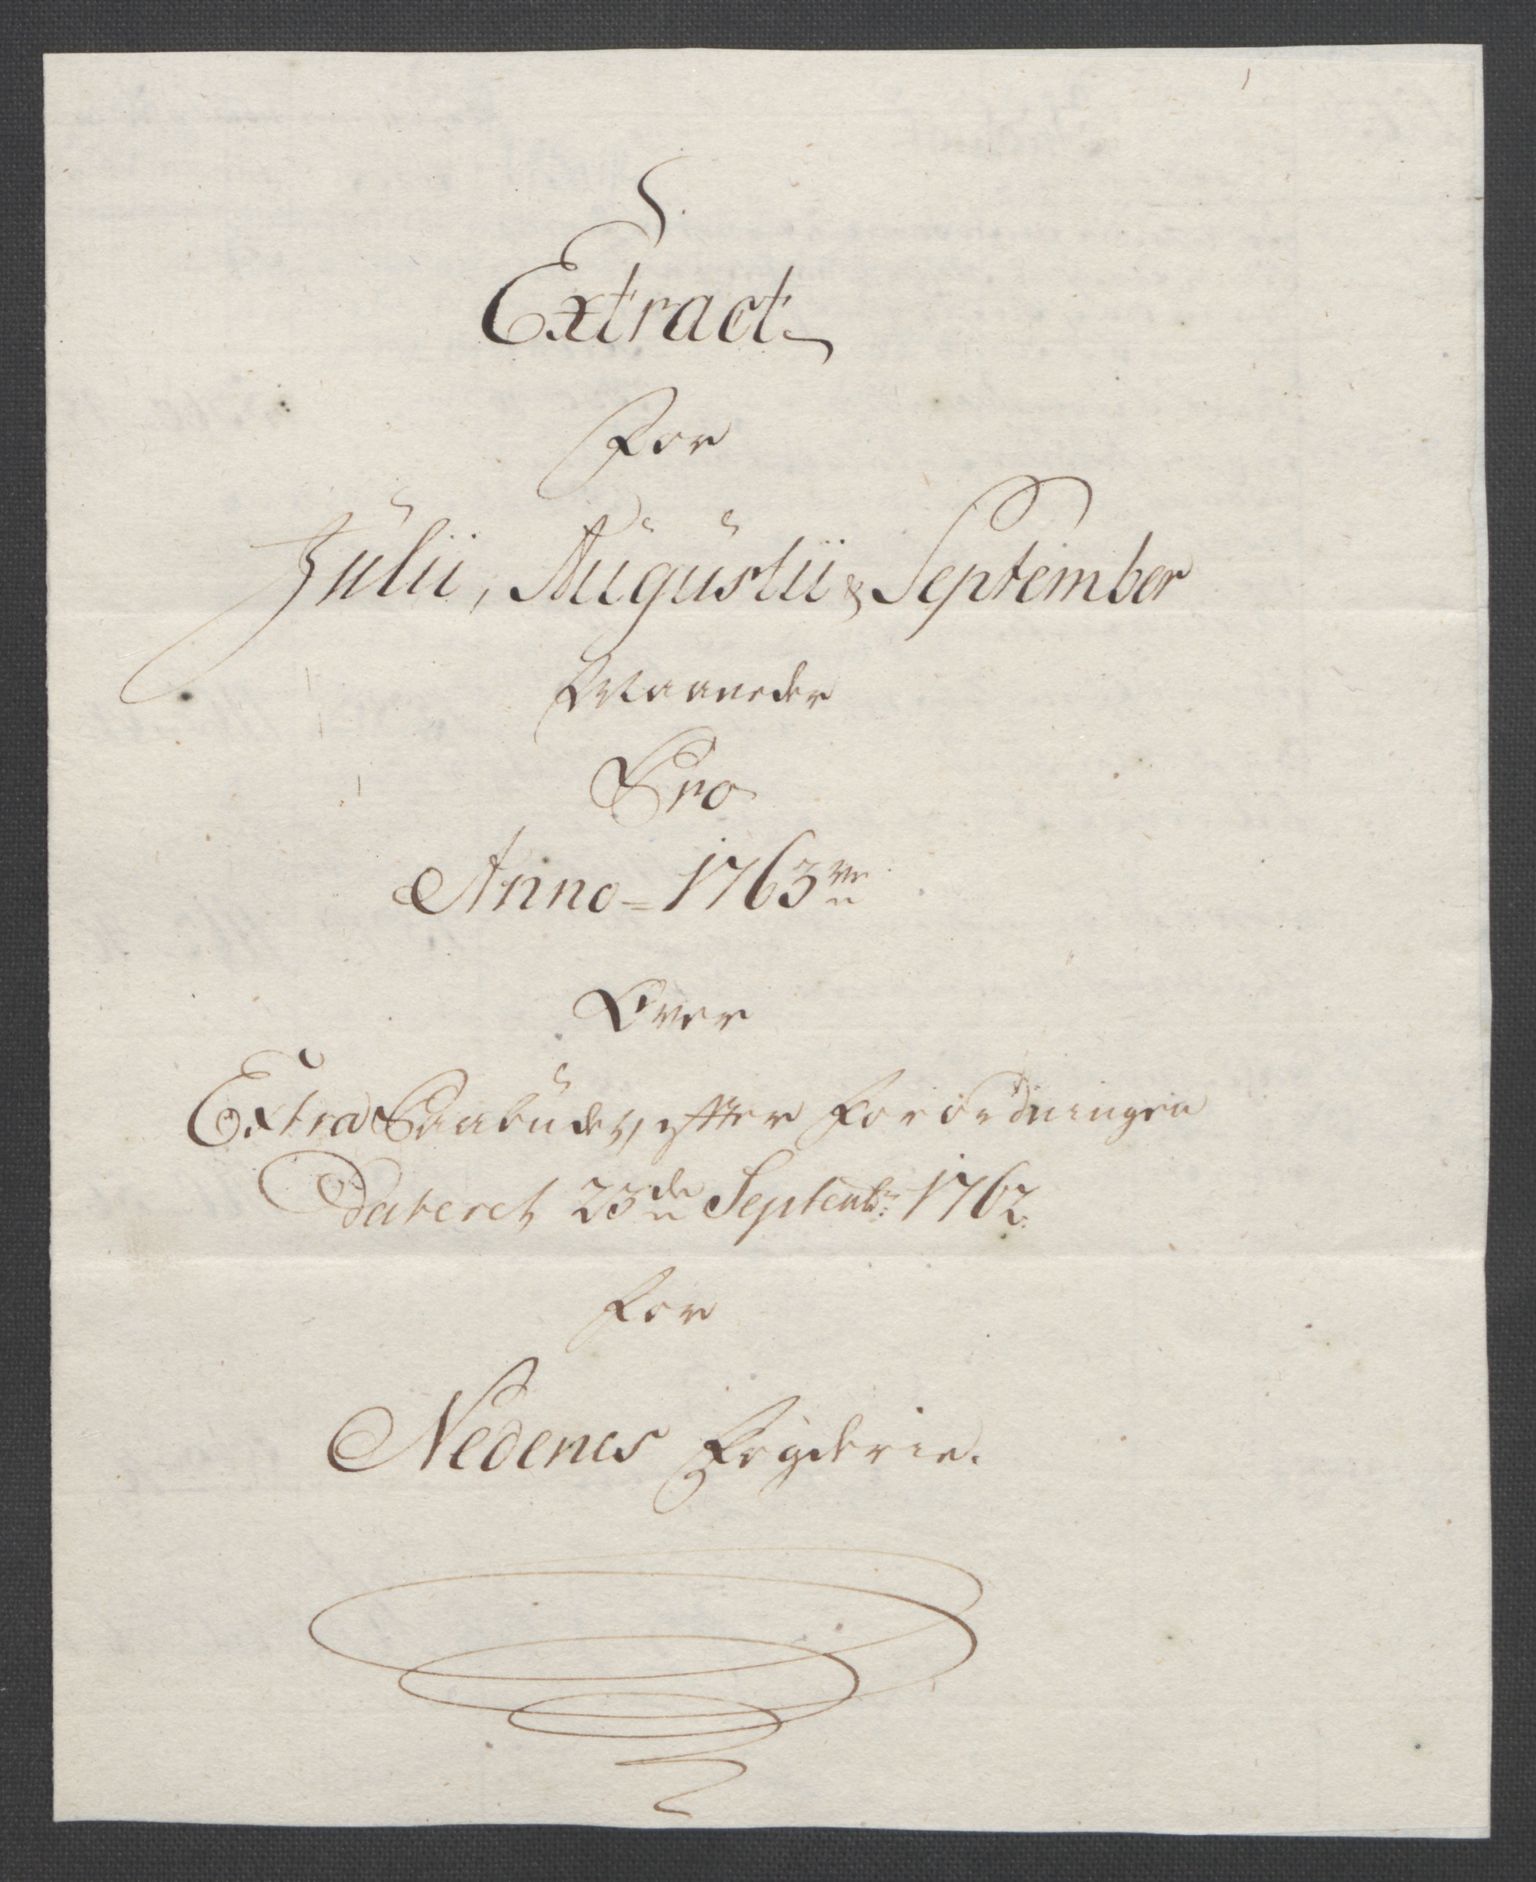 Extract
For
Julii, Augustii & September
Maaneder
Pro
Anno = 1763
Over
Extra Paabudet, efter Forordningen
Dateret 23de Septembr: 1762.
for
Nedenes Fogderie.